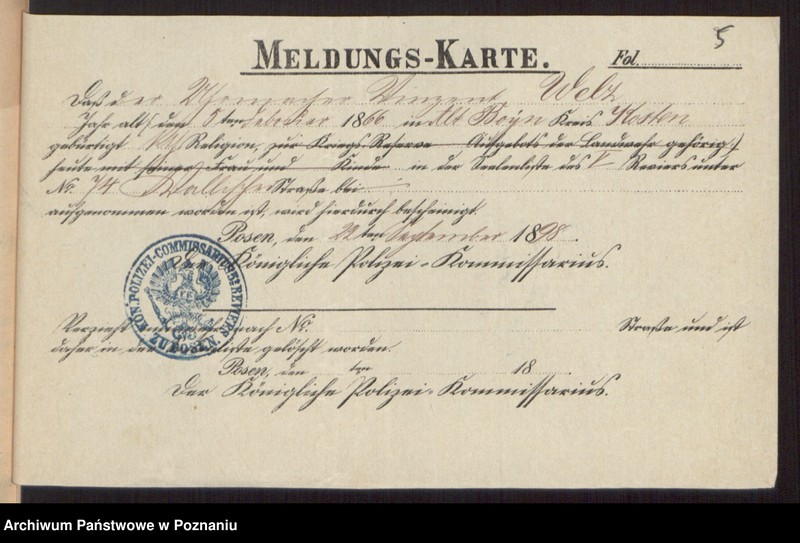 5
MELDUNGS-KARTE. Fol.
Daß der Uhrmacher Vinzent Welz
Jahr alt, den 5ten Februar 1866 in Alt Boyn Kreis Kosten
gebürtigt kath Religion, zur Kriegs-Reserve Aufgebots der Landwehr gehörig,
heute mit seiner Frau und Kinde in der Seelenliste des V Reviers unter
No. 74 Wallischei Straße bei
aufgenommen worden ist, wird hierdurch bescheinigt.
Posen, den 22ten September 1898.
Der Königliche Polizei-Kommissarius.
KÖN. POLIZEI-COMMISSARIUS 5t REVIERS
ZU POSEN.
Verzieht nach No. Straße und ist
daher in der gelöscht worden.
Posen, den ten 18
Der Königliche Polizei-Kommissarius.
Archiwum Państwowe w Poznaniu